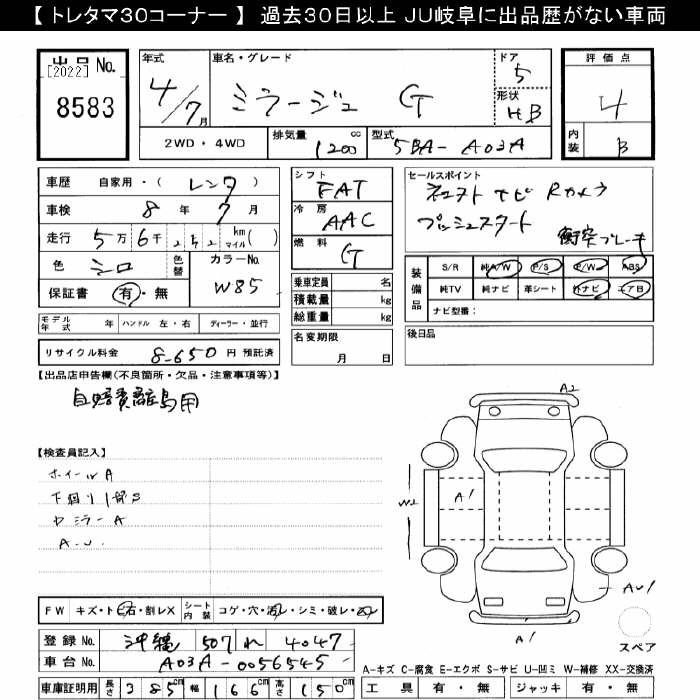 【 トレタマ30コーナー 】 過去30日以上 JU岐阜に出品歴がない車両
出品 No.
[2022]
8583
年式
4/7月
車名・グレード
ミラージュ G
ドア
5
形状
HB
評価点
4
内装
B
2WD・4WD
排気量 1200 cc
型式 5BA- A03A
車歴 自家用・( レンタ )
車検 8 年 7 月
走行 5万 6千 km マイル ( )
色 シロ
色替
カラーNo.
W85
保証書 有・無
シフト
FAT
冷房
AAC
燃料
G
乗車定員 名
積載量 kg
総重量 kg
セールスポイント
ナビ Rカメラ
プッシュスタート
衝突ブレーキ
装備品
S/R 純A/W P/S P/W ABS
純TV 純ナビ 革シート 外ナビ エアB
ナビ型番:
モデル年式 年 ハンドル 左・右 ディーラー・並行
リサイクル料金 8-650 円 預託済
名変期限
月 日
後日品
【出品店申告欄(不良箇所・欠品・注意事項等)】
自賠責離島用
【検査員記入】
ホイールA
下回りサビS
A-U
A2
W2
A1
AU1
A1
スペア
FW キズ・ト 石・割レX
シート内装 コゲ・穴・汚レ・シミ・破レ・
登録 No. 沖縄 507 れ 4047
車台 No. A03A-0056545
車庫証明用 長さ 385cm 幅 166cm 高さ 150cm
A-キズ C-腐食 E-エクボ S-サビ U-凹ミ W-補修 XX-交換済
工具 有・無 ジャッキ 有・無